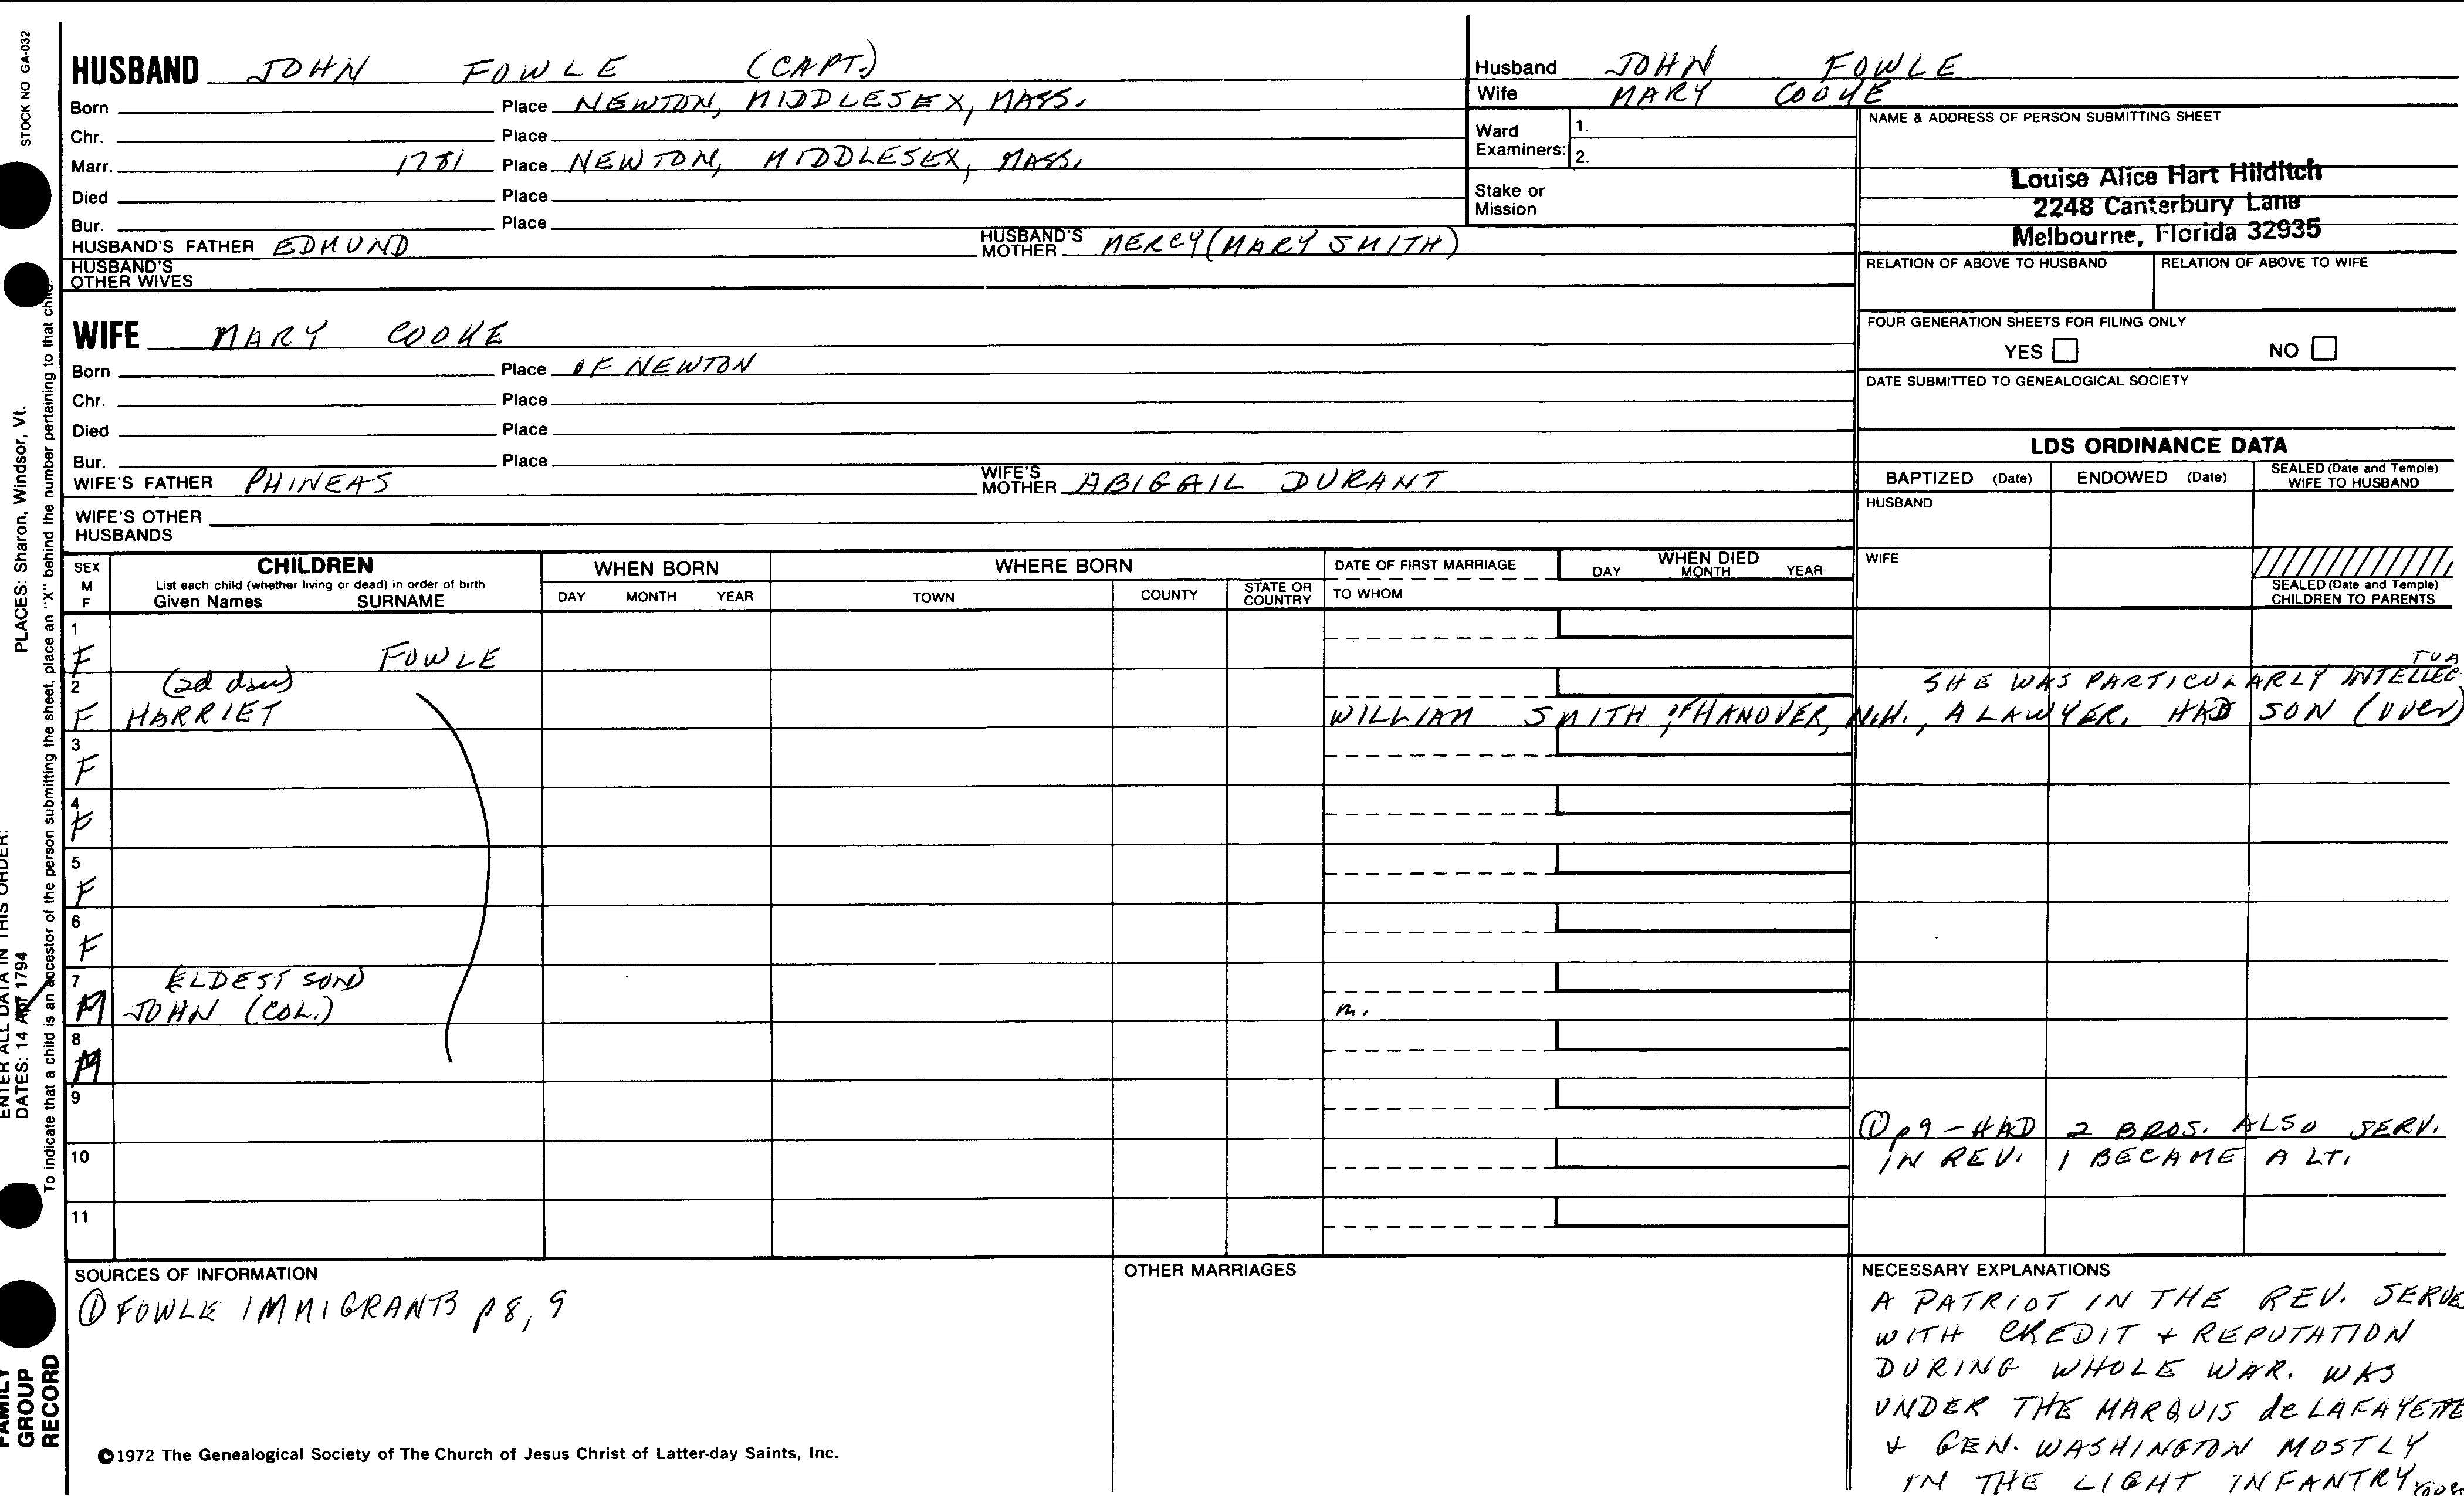 STOCK NO. GA-032
PLACES: Sharon, Windsor, Vt.
ENTER ALL DATA IN THIS ORDER:
DATES: 14 Apr 1794
To indicate that a child is an ancestor of the person submitting the sheet, place an "X" behind the number pertaining to that child.
FAMILY
GROUP
RECORD
HUSBAND JOHN FOWLE (CAPT.)
Born Place NEWTON, MIDDLESEX, MASS.
Chr. Place
Marr. 1781 Place NEWTON, MIDDLESEX, MASS.
Died Place
Bur. Place
HUSBAND'S FATHER EDMUND HUSBAND'S MOTHER MERCY (MARY SMITH)
HUSBAND'S
OTHER WIVES
WIFE MARY COOKE
Born Place OF NEWTON
Chr. Place
Died Place
Bur. Place
WIFE'S FATHER PHINEAS WIFE'S MOTHER ABIGAIL DURANT
WIFE'S OTHER
HUSBANDS
Husband JOHN FOWLE
Wife MARY COOKE
Ward
Examiners:
1.
2.
Stake or
Mission
NAME & ADDRESS OF PERSON SUBMITTING SHEET
Louise Alice Hart Hilditch
2248 Canterbury Lane
Melbourne, Florida 32935
RELATION OF ABOVE TO HUSBAND RELATION OF ABOVE TO WIFE
FOUR GENERATION SHEETS FOR FILING ONLY
YES NO
DATE SUBMITTED TO GENEALOGICAL SOCIETY
LDS ORDINANCE DATA
BAPTIZED (Date) ENDOWED (Date) SEALED (Date and Temple) WIFE TO HUSBAND
HUSBAND
WIFE
SEALED (Date and Temple)
CHILDREN TO PARENTS
SEX
M
F
CHILDREN
List each child (whether living or dead) in order of birth
Given Names SURNAME
WHEN BORN
DAY MONTH YEAR
WHERE BORN
TOWN COUNTY STATE OR COUNTRY
DATE OF FIRST MARRIAGE
TO WHOM
WHEN DIED
DAY MONTH YEAR
1
F FOWLE
2 (2d dau) SHE WAS PARTICULARLY INTELLECTUA
F HARRIET WILLIAM SMITH OF HANOVER, N.H., A LAWYER. HAD SON (over)
3
F
4
F
5
F
6
F
7 ELDEST SON
M JOHN (COL.) m.
8
M
9
① p9 - HAD 2 BROS. ALSO SERV.
10 IN REV. 1 BECAME A LT.
11
SOURCES OF INFORMATION
① FOWLE IMMIGRANTS p 8, 9
OTHER MARRIAGES
NECESSARY EXPLANATIONS
A PATRIOT IN THE REV. SERVE
WITH CREDIT + REPUTATION
DURING WHOLE WAR. WAS
UNDER THE MARQUIS de LAFAYETTE
+ GEN. WASHINGTON MOSTLY
IN THE LIGHT INFANTRY.
©1972 The Genealogical Society of The Church of Jesus Christ of Latter-day Saints, Inc.